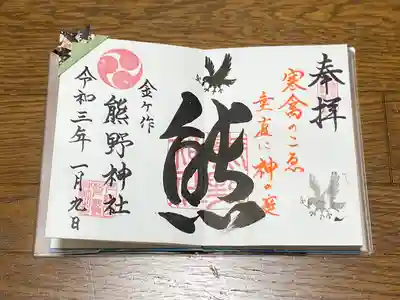 奉拝
寒禽のこゑ
垂直に神の庭
熊
金ヶ作
熊野神社
令和三年一月九日